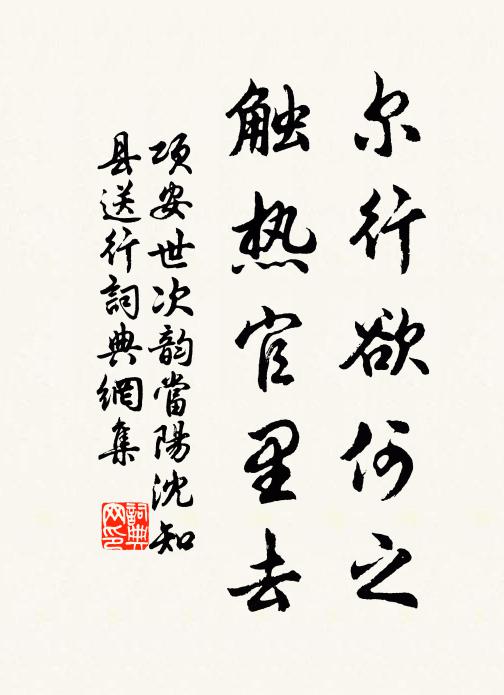 尔行欲何之
触热官里去
项安世次韵當陽沈知
县送行詞典網集
詞典网印